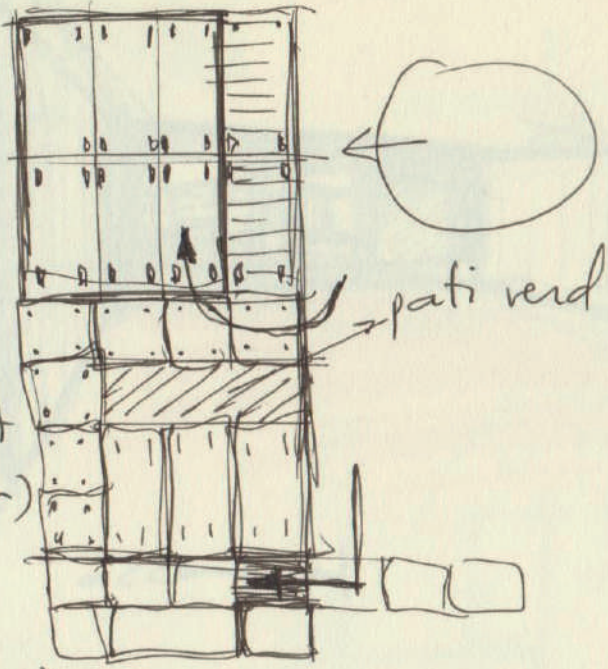 pati verd